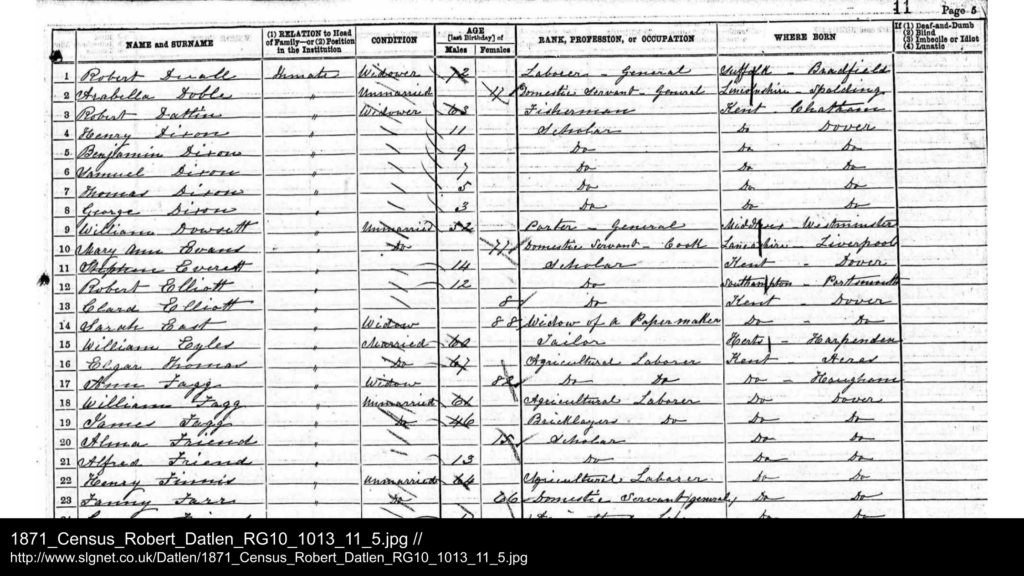 11 Page 5
NAME and SURNAME
(1) RELATION to Head of Family—or (2) Position in the Institution
CONDITION
AGE [last Birthday] of
Males Females
RANK, PROFESSION, or OCCUPATION
WHERE BORN
If (1) Deaf-and-Dumb
(2) Blind
(3) Imbecile or Idiot
(4) Lunatic
1 Robert Duall Inmate Widower 72 Laborer - General Suffolk - Bradfield
2 Arabella Doble " Unmarried Domestic Servant - General Lincolnshire - Spalding
3 Robert Datlin " Widower 63 Fisherman Kent Chatham
4 Henry Dixon " 11 Scholar Do Dover
5 Benjamin Dixon " 9 Do Do Do
6 Samuel Dixon " 7 Do Do Do
7 Thomas Dixon " 5 Do Do Do
8 George Dixon " 3 Do Do Do
9 William Dowsett " Unmarried 52 Porter - General Middlesex - Westminster
10 Mary Ann Evans " Do 71 Domestic Servant - Cook Lancashire - Liverpool
11 Stephen Everett " 14 Scholar Kent - Dover
12 Robert Elliott " 12 Do Southampton - Portsmouth
13 Clara Elliott " 8 Do Kent - Dover
14 Sarah East " Widow 88 Widow of a Papermaker Do - Do
15 William Eyles " Married Tailor Herts - Harpenden
16 Elgar Thomas " Do 67 Agricultural Laborer Kent Acres
17 Ann Fagg " Widow 82 Do Do Do - Hougham
18 William Fagg " Unmarried 61 Agricultural Laborer Do Dover
19 James Fagg " Do 46 Bricklayers Do Do Do
20 Alma Friend " 15 Scholar Do Do
21 Alfred Friend " 13 Do Do Do
22 Henry Finnis " Unmarried 64 Agricultural Laborer Do Do
23 Fanny Farr " Do 66 Domestic Servant (general) Do Do
1871_Census_Robert_Datlen_RG10_1013_11_5.jpg //
http://www.slgnet.co.uk/Datlen/1871_Census_Robert_Datlen_RG10_1013_11_5.jpg